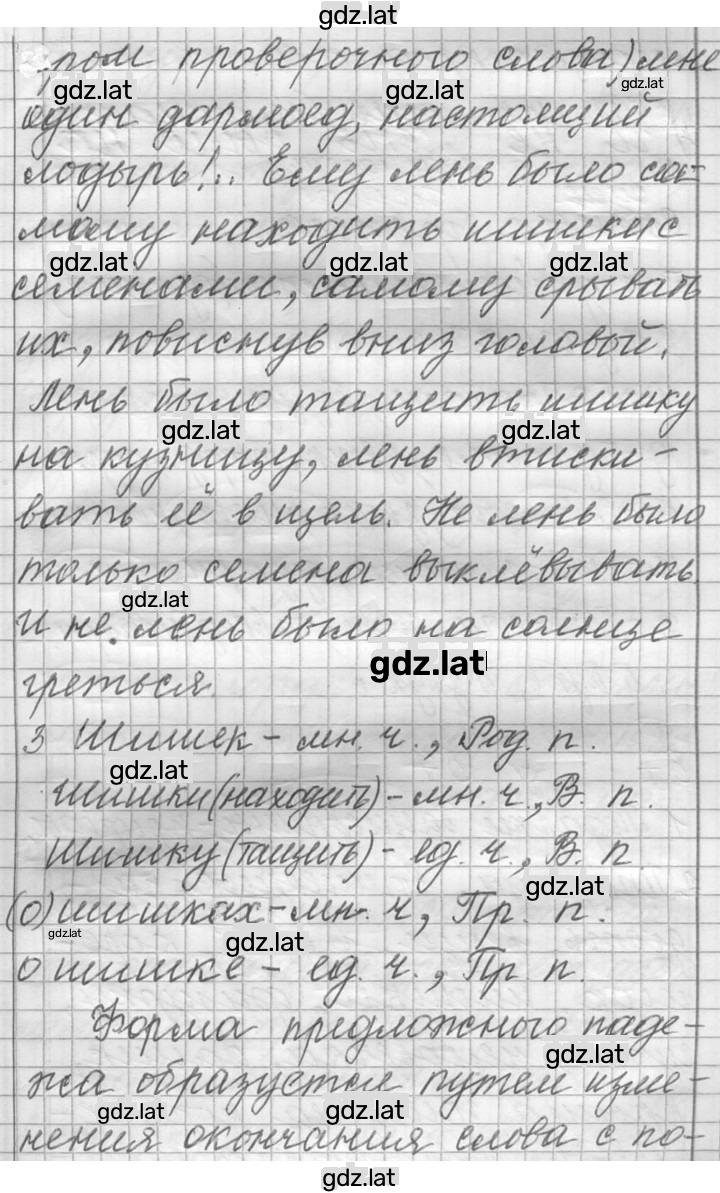 gdz.lat
ром проверочного слова) мне
gdz.lat gdz.lat gdz.lat
один дармоед, настоящий
лодырь!.. Ему лень было са-
мому находить шишки с
gdz.lat gdz.lat gdz.lat
семенами, самому срывать
их, повиснув вниз головой.
Лень было тащить шишку
gdz.lat gdz.lat
на кузницу, лень втиски-
вать её в щель. Не лень было
только семена выклёвывать.
gdz.lat
И не лень было на солнце
gdz.lat
греться.
3 Шишек - мн. ч., Род. п.
gdz.lat
Шишки (находить) - мн. ч., В. п.
Шишку (тащить) - ед. ч., В. п.
gdz.lat
(о) шишках - мн. ч., Пр. п.
gdz.lat gdz.lat
о шишке - ед. ч., Пр. п.
Форма предложного паде-
gdz.lat
жа образуется путем изме-
gdz.lat gdz.lat
нения окончания слова с по-
gdz.lat